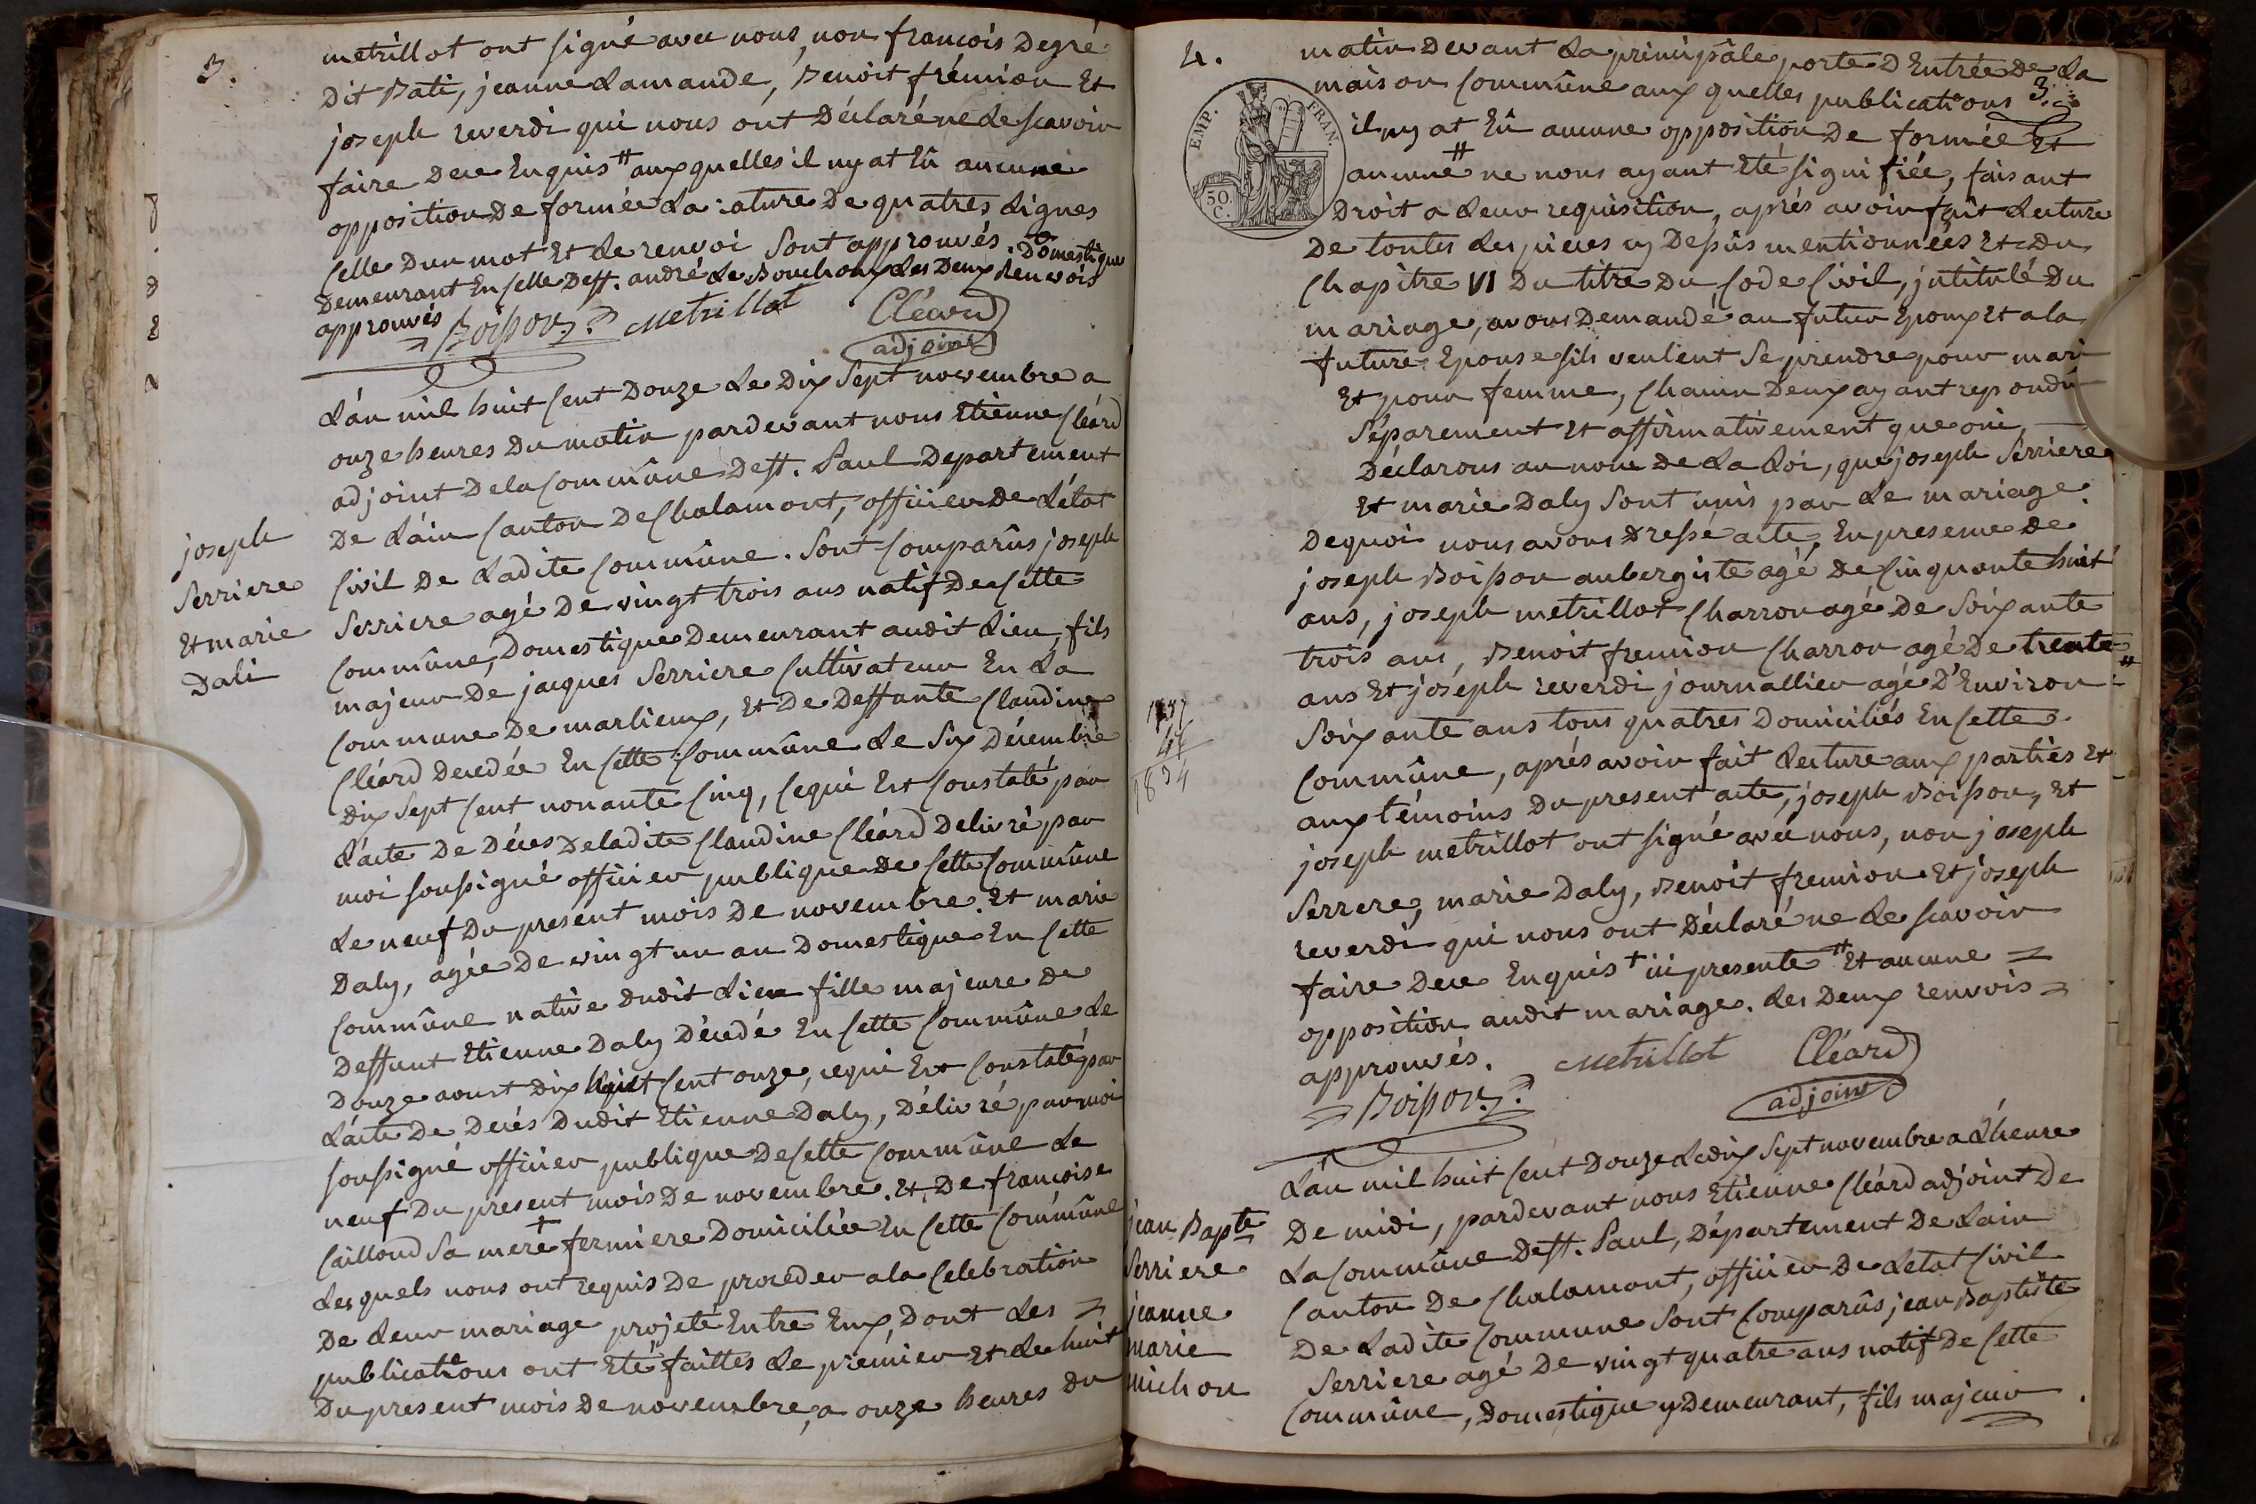 3.
metrillot ont signé avec nous, non francois Degré
dit Bati, jeanne Lamande, Benoit frémion Et
joseph reverdi qui nous ont Déclaré ne le scavoir
faire dece Enquis # aux quelles il ny at Eû aucune
opposition de formée La rature De quatres Lignes
celle Dun mot Et le renvoi sont approuvés. Domestique
Demeurant En celle De st. andré Le Bouchoux Les Deux Renvois
approuvés
Boisson Metrillot Cléard
adjoint
joseph
Serriere
Et marie
Dali
L'an mil huit cent Douze Le Dix Sept novembre a
onze heures Du matin pardevant nous Etienne Cléard
adjoint De la Commûne De st. Paul Departement
De L'ain Canton De Chalamont, officier De L'état
Civil De Ladite Commûne. Sont Comparûs joseph
Serriere agé De vingt trois ans natif De Cette
Commûne, Domestique Demeurant audit Lieu, fils
majeur De jacques Serriere Cultivateur En La
Commune De marlieux, Et De Deffante Claudine
Cléard Decedée En Cette Commûne Le Six Décembre
Dix Sept Cent nonante Cinq, Cequi Est Constaté par
L'acte De Décès De ladite Claudine Cléard Delivré par
moi soussigné officier publique De Cette Commûne
Le neuf Du present mois De novembre. Et marie
Daly, agée De vingt un an Domestique En Cette
Commûne native dudit Lieu fille majeure De
Deffunt Etienne Daly Décedé En Cette Commûne Le
Douze aoust Dix huit Cent onze, cequi Est Constaté par
L'acte De Decés Dudit Etienne Daly, Délivré par moi
soussigné officier publique De Cette Commûne Le
neuf Du present mois De novembre. Et De francoise
Caillond Sa mere + fermiere Domiciliée En Cette Commûne
Les quels nous ont requis De proceder a la Celebration
De Leur mariage projeté Entre Eux, Dont Les =
publications ont Eté faittes Le premier Et Le huit
Du present mois De novembre, a onze heures du
4.
3.
EMP. FRAN.
50
C.
matin Devant La principâle porte D'Entrée De La
maison Commûne aux quelles publications
il ny at Eû aucune opposition De formée Et
aucune # ne nous ayant Eté signifiée, faisant
Droit a Leur requisition, aprés avoir fait Lecture
De toutes Les pieces cy Dessûs mentionnées Et du
Chapître VI Du titre Du Code Civil, jntitulé Du
mariage, avons Demandé au futur Epoux Et a la
future Epouse sils veulent Se prendre pour mari
Et pour femme, Chacun Deux ayant repondû
Séparement Et affirmativement que oui,
Déclarons au nom De La Loi, que joseph Serriere
Et marie Daly Sont unis par Le mariage.
Dequoi nous avons dressé acte, En presence De
joseph Boisson aubergiste agé De Cinquante huit
ans, joseph metrillot Charron agé De Soixante
trois ans, Benoit fremion Charron agé De trente #
ans Et joseph reverdi journallier agé D'Environ
Soixante ans tous quatres Domiciliés En Cette
Commûne, aprés avoir fait Lecture aux parties Et
aux témoins Du present acte, joseph Boisson, Et
joseph metrillot ont signé avec nous, non joseph
Serrere, marie Daly, Benoit fremion Et joseph
reverdi qui nous ont Déclaré ne Le scavoir
faire Dece Enquis + ici presente # Et aucune =
opposition audit mariage. Les Deux renvois =
approuvés.
Boisson Metrillot Cléard
adjoint
1834
jean Bapte
Serriere
jeanne
marie
michon
L'an mil huit Cent Douze Le dix Sept novembre a L'heure
De midi, pardevant nous Etienne Cléard adjoint De
La Commûne De st. Paul, Département De L'ain
Canton De Chalamont, officier De Letat Civil
De Ladite Commune Sont Comparûs jean Baptiste
Serriere agé De vingt quatre ans natif De Cette
Commûne, Domestique y Demeurant, fils majeur